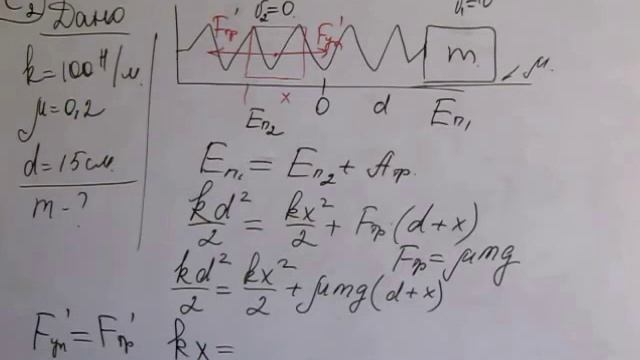 2) Дано
k=100 Н/м.
μ=0,2
d=15см.
m-?
υ₂=0.
F'тр
F'уп
m
μ.
x
0
d
Eп₂
Eп₁
Eп₁ = Eп₂ + Aтр.
kd²/2 = kx²/2 + Fтр(d+x)
Fтр=μmg
kd²/2 = kx²/2 + μmg(d+x)
F'уп = F'тр
kx =